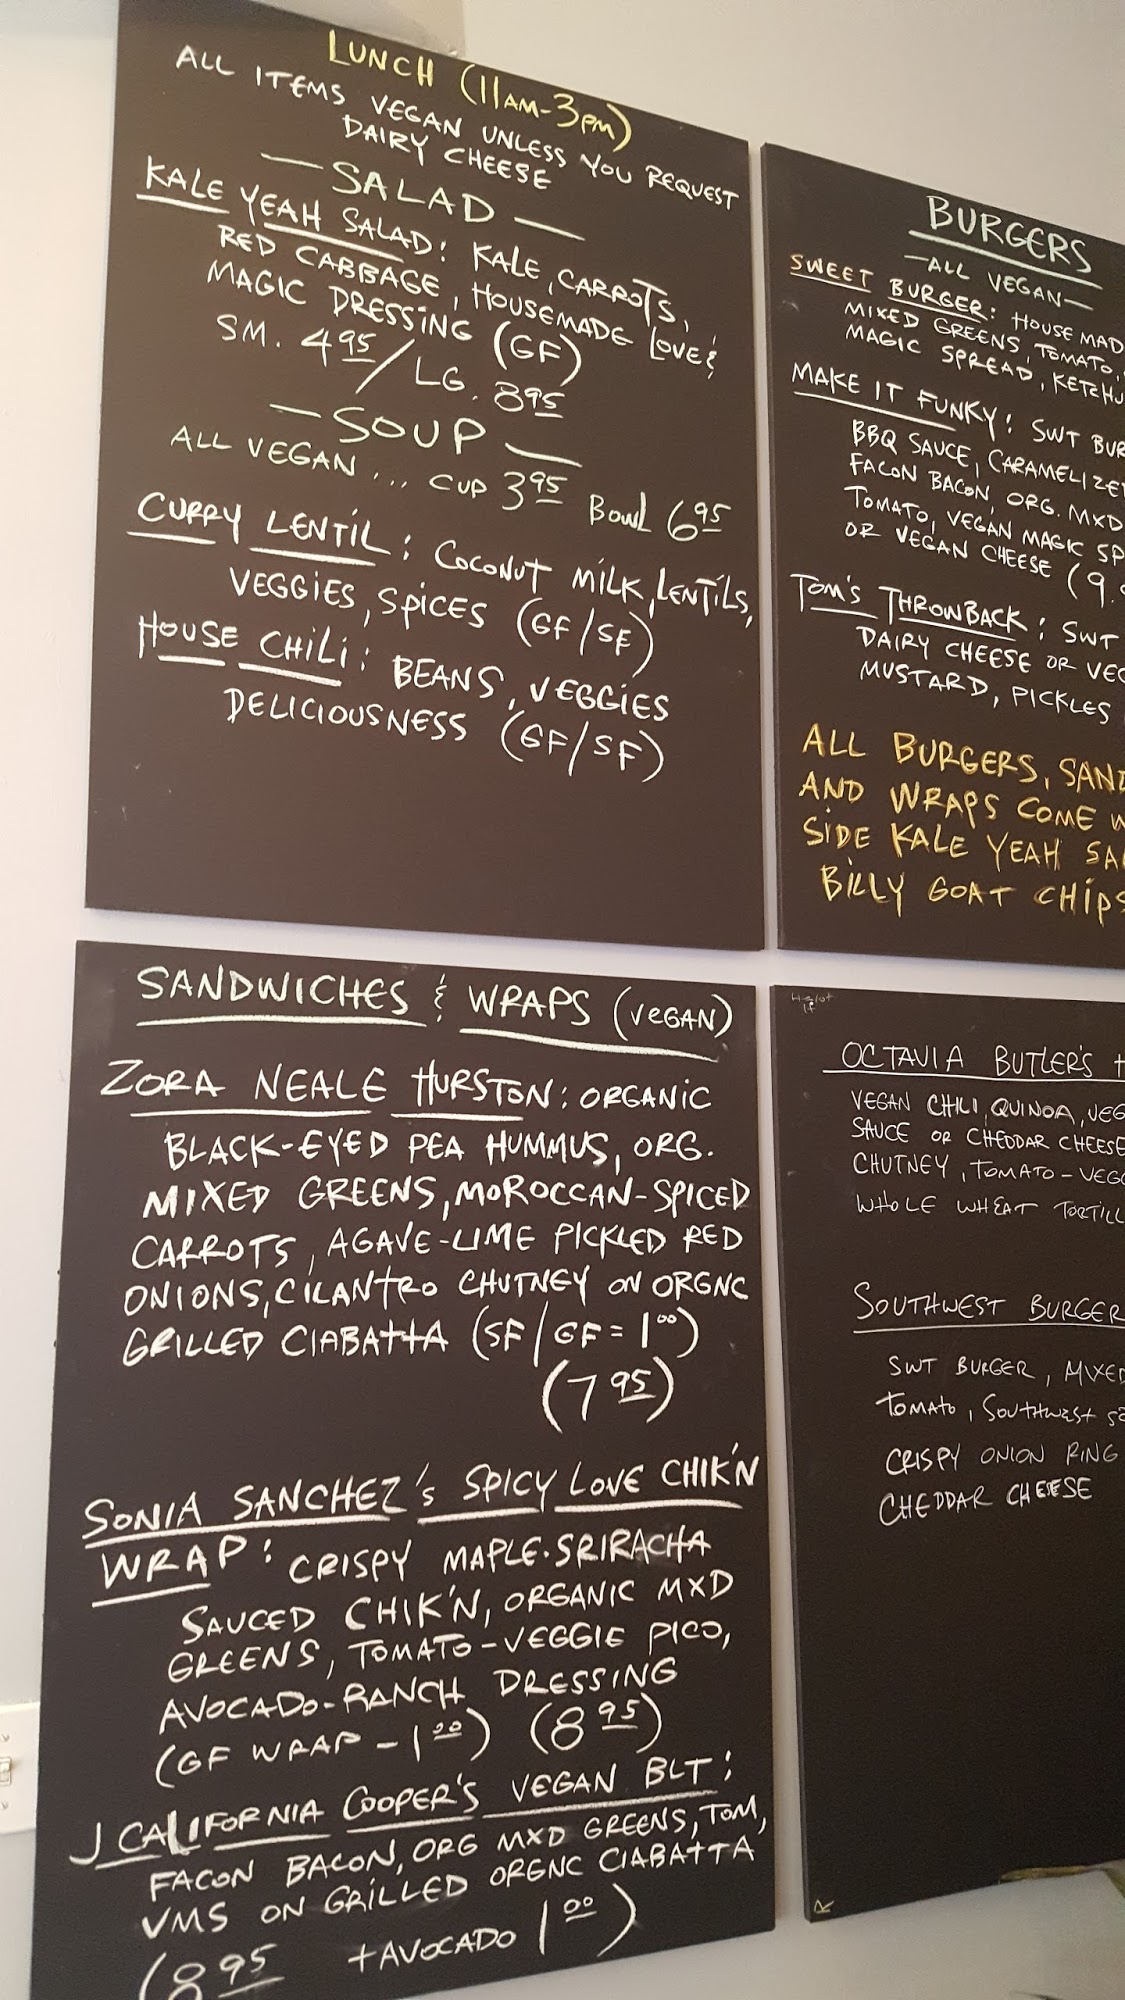 LUNCH (11AM-3PM)
ALL ITEMS VEGAN UNLESS YOU REQUEST
DAIRY CHEESE
— SALAD —
KALE YEAH SALAD: KALE, CARROTS,
RED CABBAGE, HOUSEMADE LOVE &
MAGIC DRESSING (GF)
SM. 4.95 / LG. 8.95
— SOUP —
ALL VEGAN... CUP 3.95 BOWL 6.95
CURRY LENTIL: COCONUT MILK, LENTILS,
VEGGIES, SPICES (GF/SF)
HOUSE CHILI: BEANS, VEGGIES
DELICIOUSNESS (GF/SF)
BURGERS
—ALL VEGAN—
SWEET BURGER: HOUSE MAD
MIXED GREENS, TOMATO,
MAGIC SPREAD, KETCHU
MAKE IT FUNKY: SWT BUR
BBQ SAUCE, CARAMELIZE
FACON BACON, ORG. MXD
TOMATO, VEGAN MAGIC SP
OR VEGAN CHEESE (9.
TOM'S THROWBACK: SWT
DAIRY CHEESE OR VEG
MUSTARD, PICKLES
ALL BURGERS, SAND
AND WRAPS COME W
SIDE KALE YEAH SA
BILLY GOAT CHIPS
SANDWICHES & WRAPS (VEGAN)
ZORA NEALE HURSTON: ORGANIC
BLACK-EYED PEA HUMMUS, ORG.
MIXED GREENS, MOROCCAN-SPICED
CARROTS, AGAVE-LIME PICKLED RED
ONIONS, CILANTRO CHUTNEY ON ORGNC
GRILLED CIABATTA (SF/GF = 1.00)
(7.95)
SONIA SANCHEZ'S SPICY LOVE CHIK'N
WRAP: CRISPY MAPLE-SRIRACHA
SAUCED CHIK'N, ORGANIC MXD
GREENS, TOMATO-VEGGIE PICO,
AVOCADO-RANCH DRESSING
(GF WRAP - 1.00) (8.95)
J CALIFORNIA COOPER'S VEGAN BLT:
FACON BACON, ORG MXD GREENS, TOM,
VMS ON GRILLED ORGNC CIABATTA
(8.95 +AVOCADO 1.00)
OCTAVIA BUTLER'S
VEGAN CHILI, QUINOA, VEG
SAUCE OR CHEDDAR CHEESE
CHUTNEY, TOMATO-VEGG
WHOLE WHEAT TORTILL
SOUTHWEST BURGER
SWT BURGER, MIXED
TOMATO, SOUTHWEST
CRISPY ONION RING
CHEDDAR CHEESE